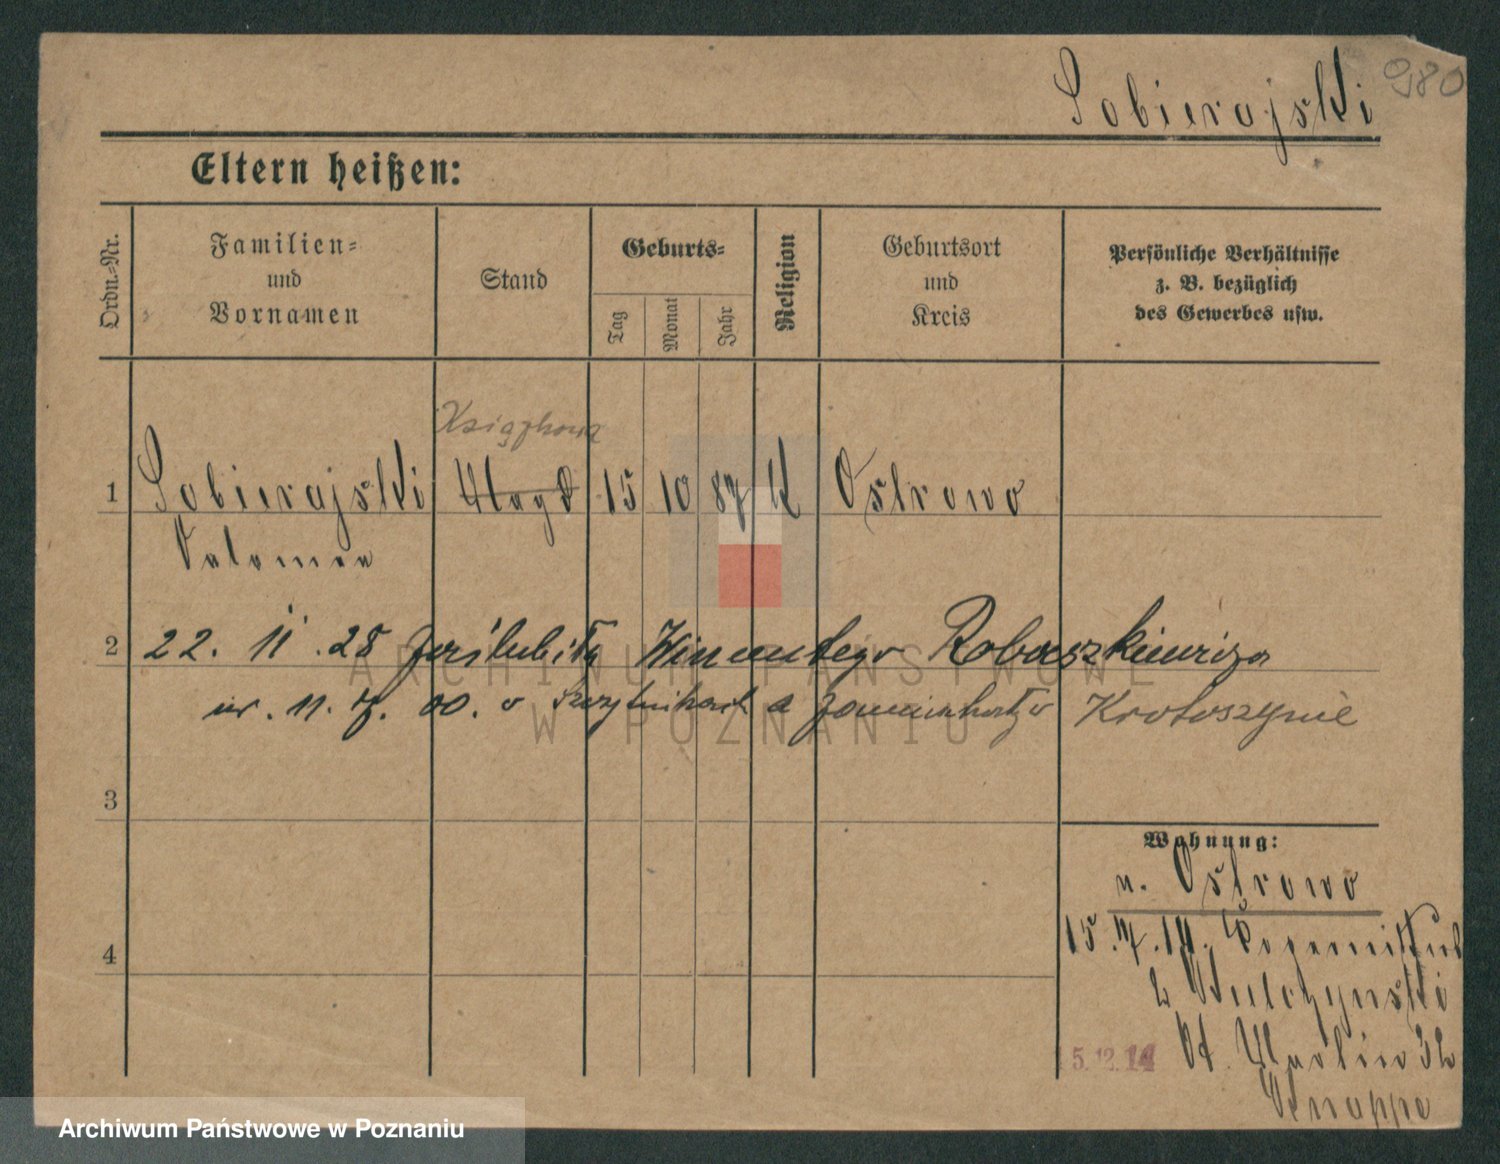 980
Sobierajski
Eltern heißen:
Ordn.-Nr.
Familien-
und
Vornamen
Stand
Geburts-
Tag
Monat
Jahr
Religion
Geburtsort
und
Kreis
Persönliche Verhältnisse
z. B. bezüglich
des Gewerbes usw.
1
Sobierajski
Magd
15
10
87
K
Ostrowo
Salomea
2
22. 11. 28 poślubiła Wincentego Robaszkiewicza
ur. 11. 7. 00. w a w Krotoszynie
3
4
Wohnung:
n. Ostrowo
15.
b
St. Martin 32
Knappe
5.12.14
ARCHIWUM PAŃSTWOWE
W POZNANIU
Archiwum Państwowe w Poznaniu